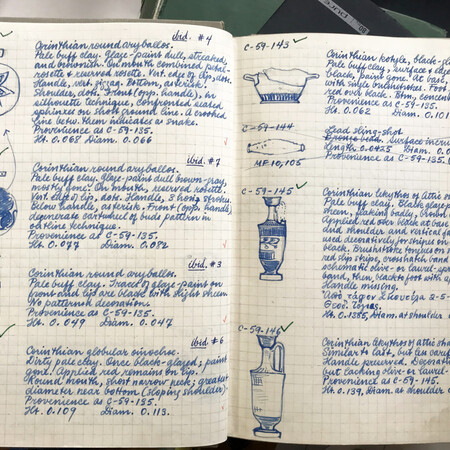 Ibid. #4
Corinthian round aryballos.
Pale buff clay. Glaze-paint dull, streaked
and brownish. On mouth combined petal-
rosette & reserved rosette. Vert. edge of lip, dots.
Handle, vert. zigzag. Bottom, asterisk.
Shoulder, dots. Front (opp. handle), in
silhouette technique, confronted seated
sphinxes on short ground line. A crooked
line betw. them indicates a snake.
Provenience as C-59-135.
Ht. 0.068 Diam. 0.066
Ibid. #7
Corinthian round aryballos.
Pale buff clay. Glaze-paint dull brown-gray,
mostly gone. On mouth, reserved rosette.
Vert. edge of lip, dots. Handle, 3 horiz. strokes.
Below handle, asterisk. Front (opp. handle)
degenerate cartwheel of buds pattern in
outline technique.
Provenience as C-59-135.
Ht. 0.077 Diam. 0.082
Ibid. #3
Corinthian round aryballos.
Pale buff clay. Traces of glaze-paint on
front and lip are black with slight sheen.
No patternık decoration.
Provenience as C-59-135.
Ht. 0.049 Diam. 0.047
Ibid. #6
Corinthian globular oinochoe.
Dirty pale clay. Once black-glazed; paint
gone. Applied red remains on lip.
Round mouth, short narrow neck; greatest
diameter near bottom (sloping shoulder).
Provenience as C-59-135.
Ht. 0.109 Diam. 0.113.
C-59-143
Corinthian kotyle, black-gl
Pale buff clay, surface & de
black, paint gone. At base,
with single
red over black. Tondo, concen
Provenience as C-59-135.
Ht. 0.062 Diam. 0.101
C-59-144
Lead sling-shot.
Surface incr
Length. 0.0425 Diam. 0.0
Provenience as C-59-135.
MF 10,105
C-59-145
Corinthian lekythos of Attic
Pale buff clay. Black glaze
sheen, flaking badly, brown
Applied red over black at bas
and shoulder and vertical
used decoratively for stripes on
black. Brushstroke tongues on
red slip stripes, crosshatch band
schematic olive- or laurel-spr
band, then black to foot with
Handle missing.
2-5-
Ht. 0.1385, Diam. at shoulder
C-59-146
Corinthian lekythos of attic sha
Similar to last, but less care
Handle preserved. Decorati
but lacking olive- or laurel-
Provenience as C-59-145.
Ht. 0.139, Diam. at shoulder